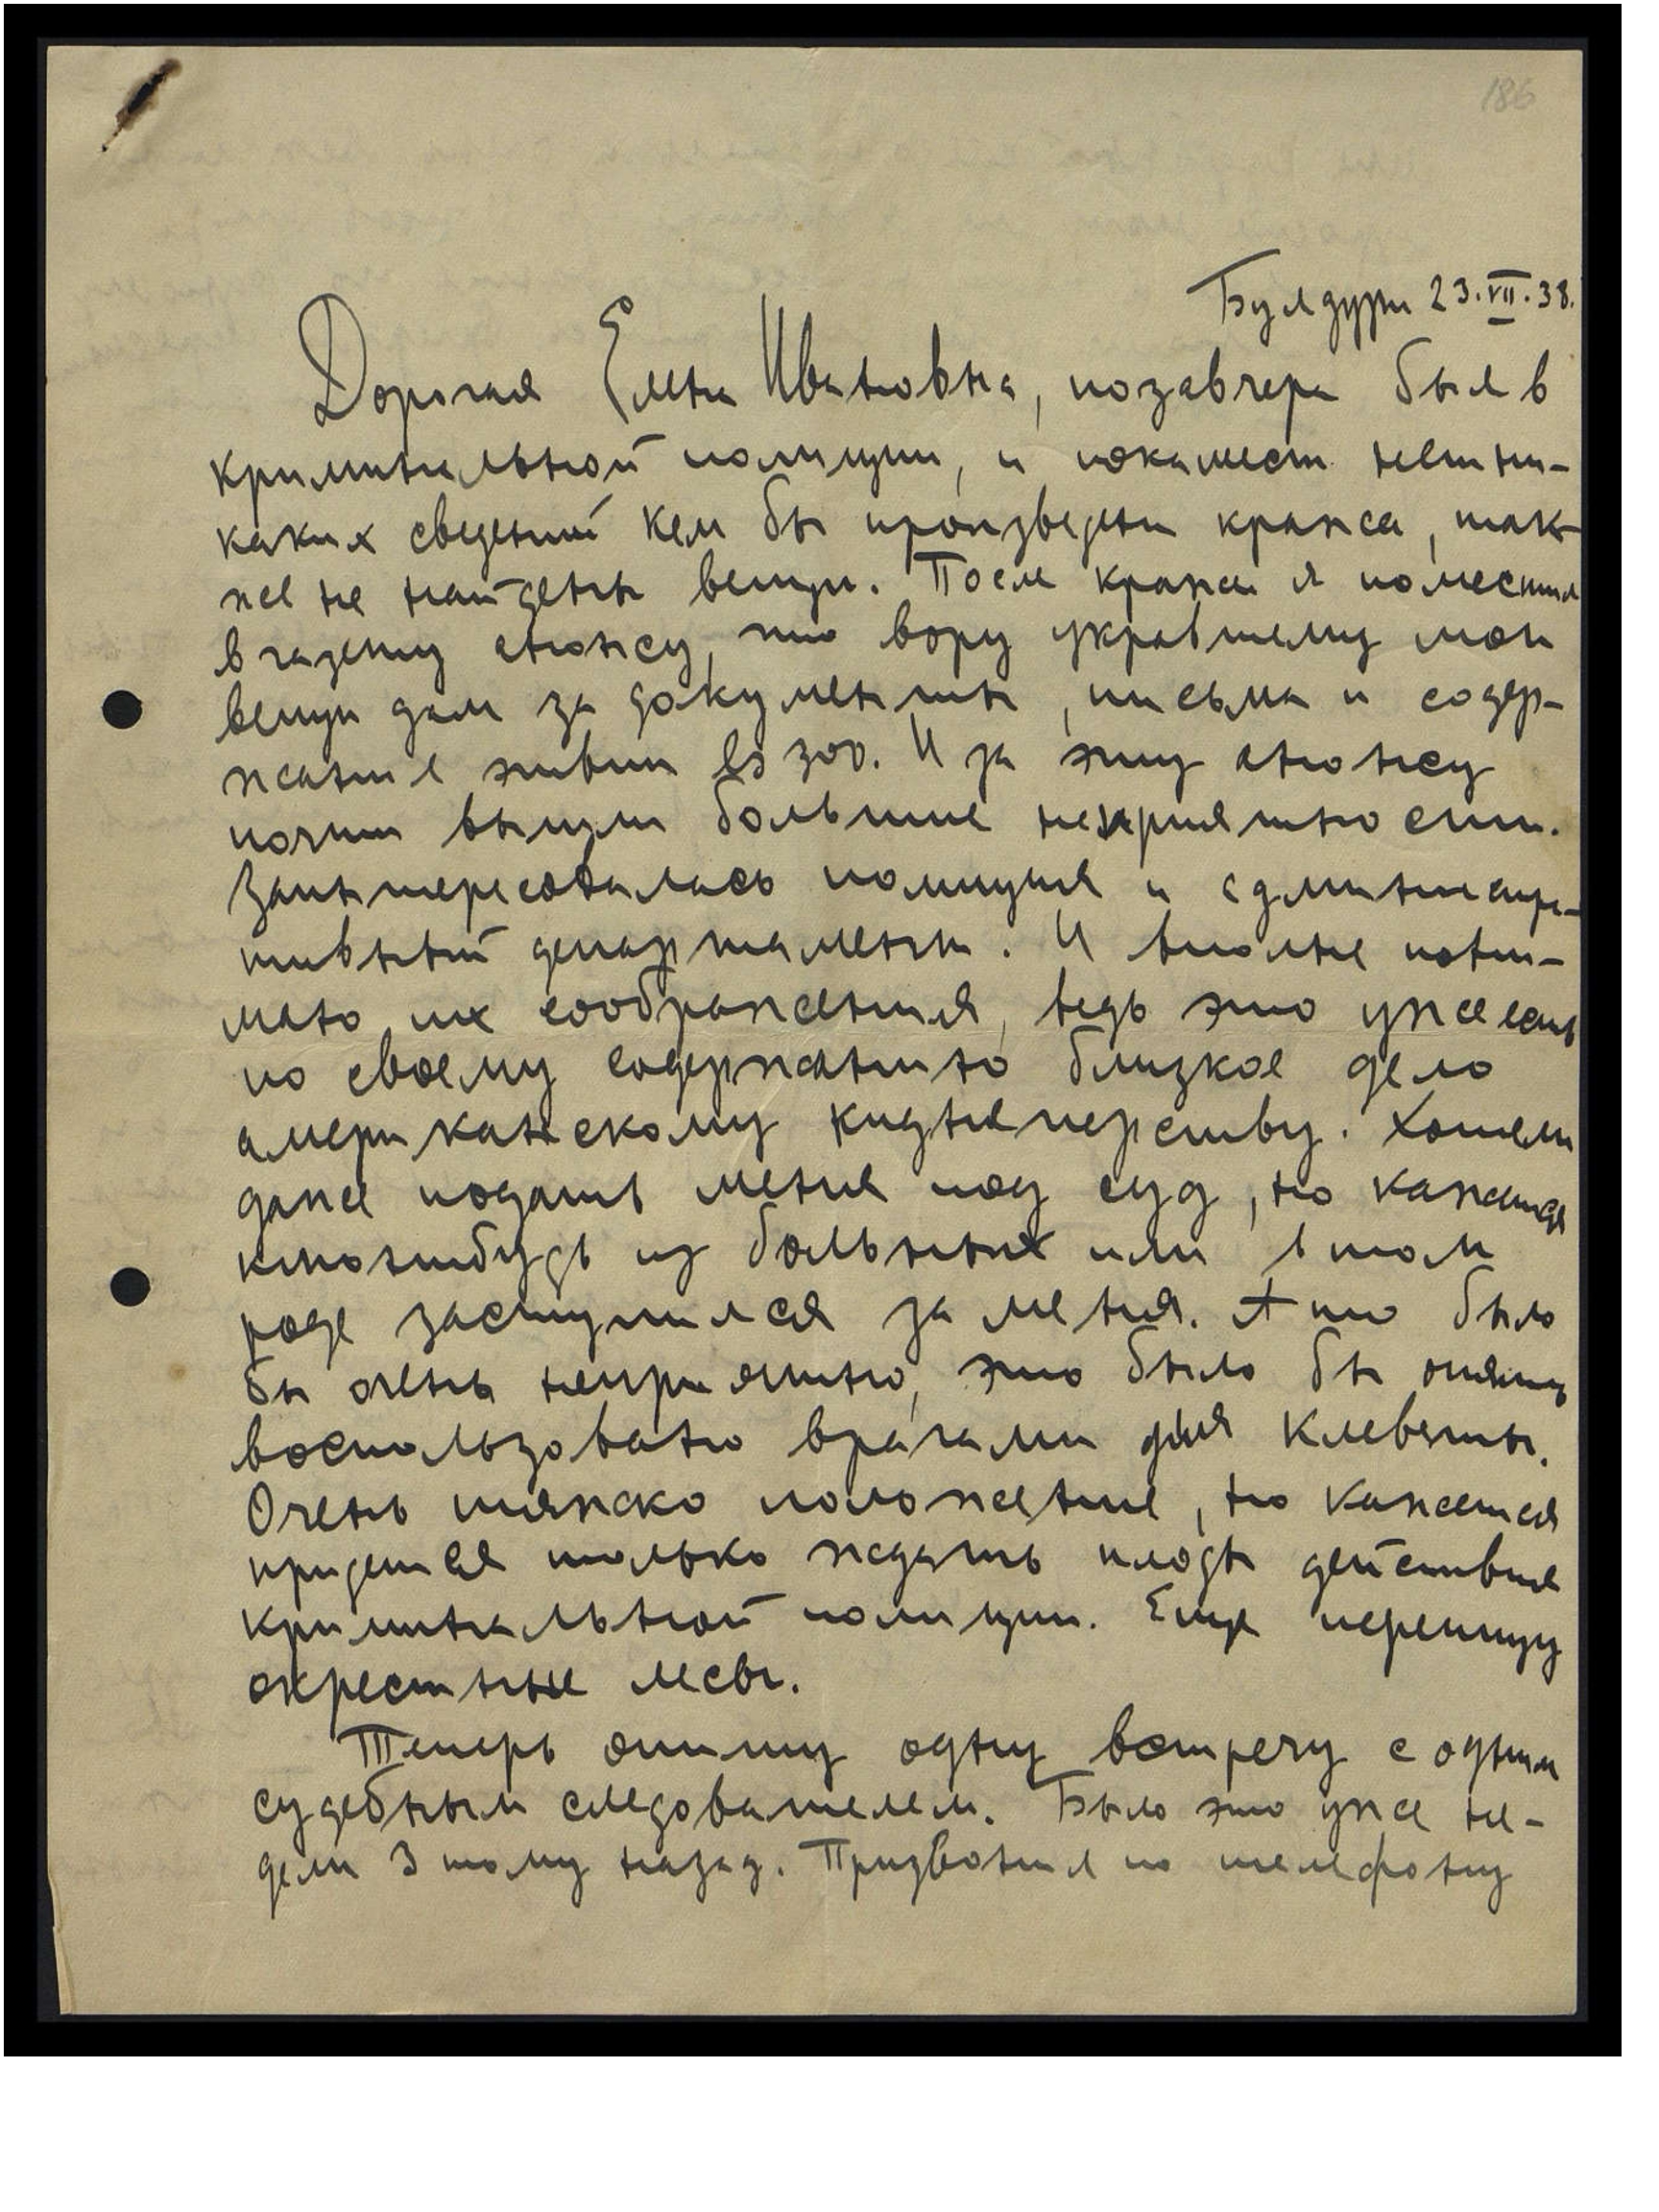 186
Булдури 23.VII.38.
Дорогая Елена Ивановна, позавчера был в
криминальной полиции, и покамест нет ни-
каких сведений кем бы произведена кража, так
же не найдены вещи. После кражи я поместил
в газету анонсу, что вору укравшему мои
вещи дам за документы, письма и содер-
жание Ls 300. И за эту анонсу
почти вышли большие неприятности.
Заинтересовалась полиция и администра-
тивный департамент. И вполне пони-
мано их соображения, ведь это уже есть
по своему содержанию близкое дело
американскому киднаперству. Хотели
даже подать меня под суд, но кажется
ктонибудь из больных или в том
роде заступился за меня. А то было
бы очень неприятно, это было бы опять
воспользовано врагами для клеветы.
Очень тяжко положение, но кажется
придется только ждать плоды действия
криминальной полиции. Еще перешну
окрестные лесы.
Теперь опишу одну встречу с одним
судебным следователем. Было это уже не-
дели 3 тому назад. Призвонил по телефону